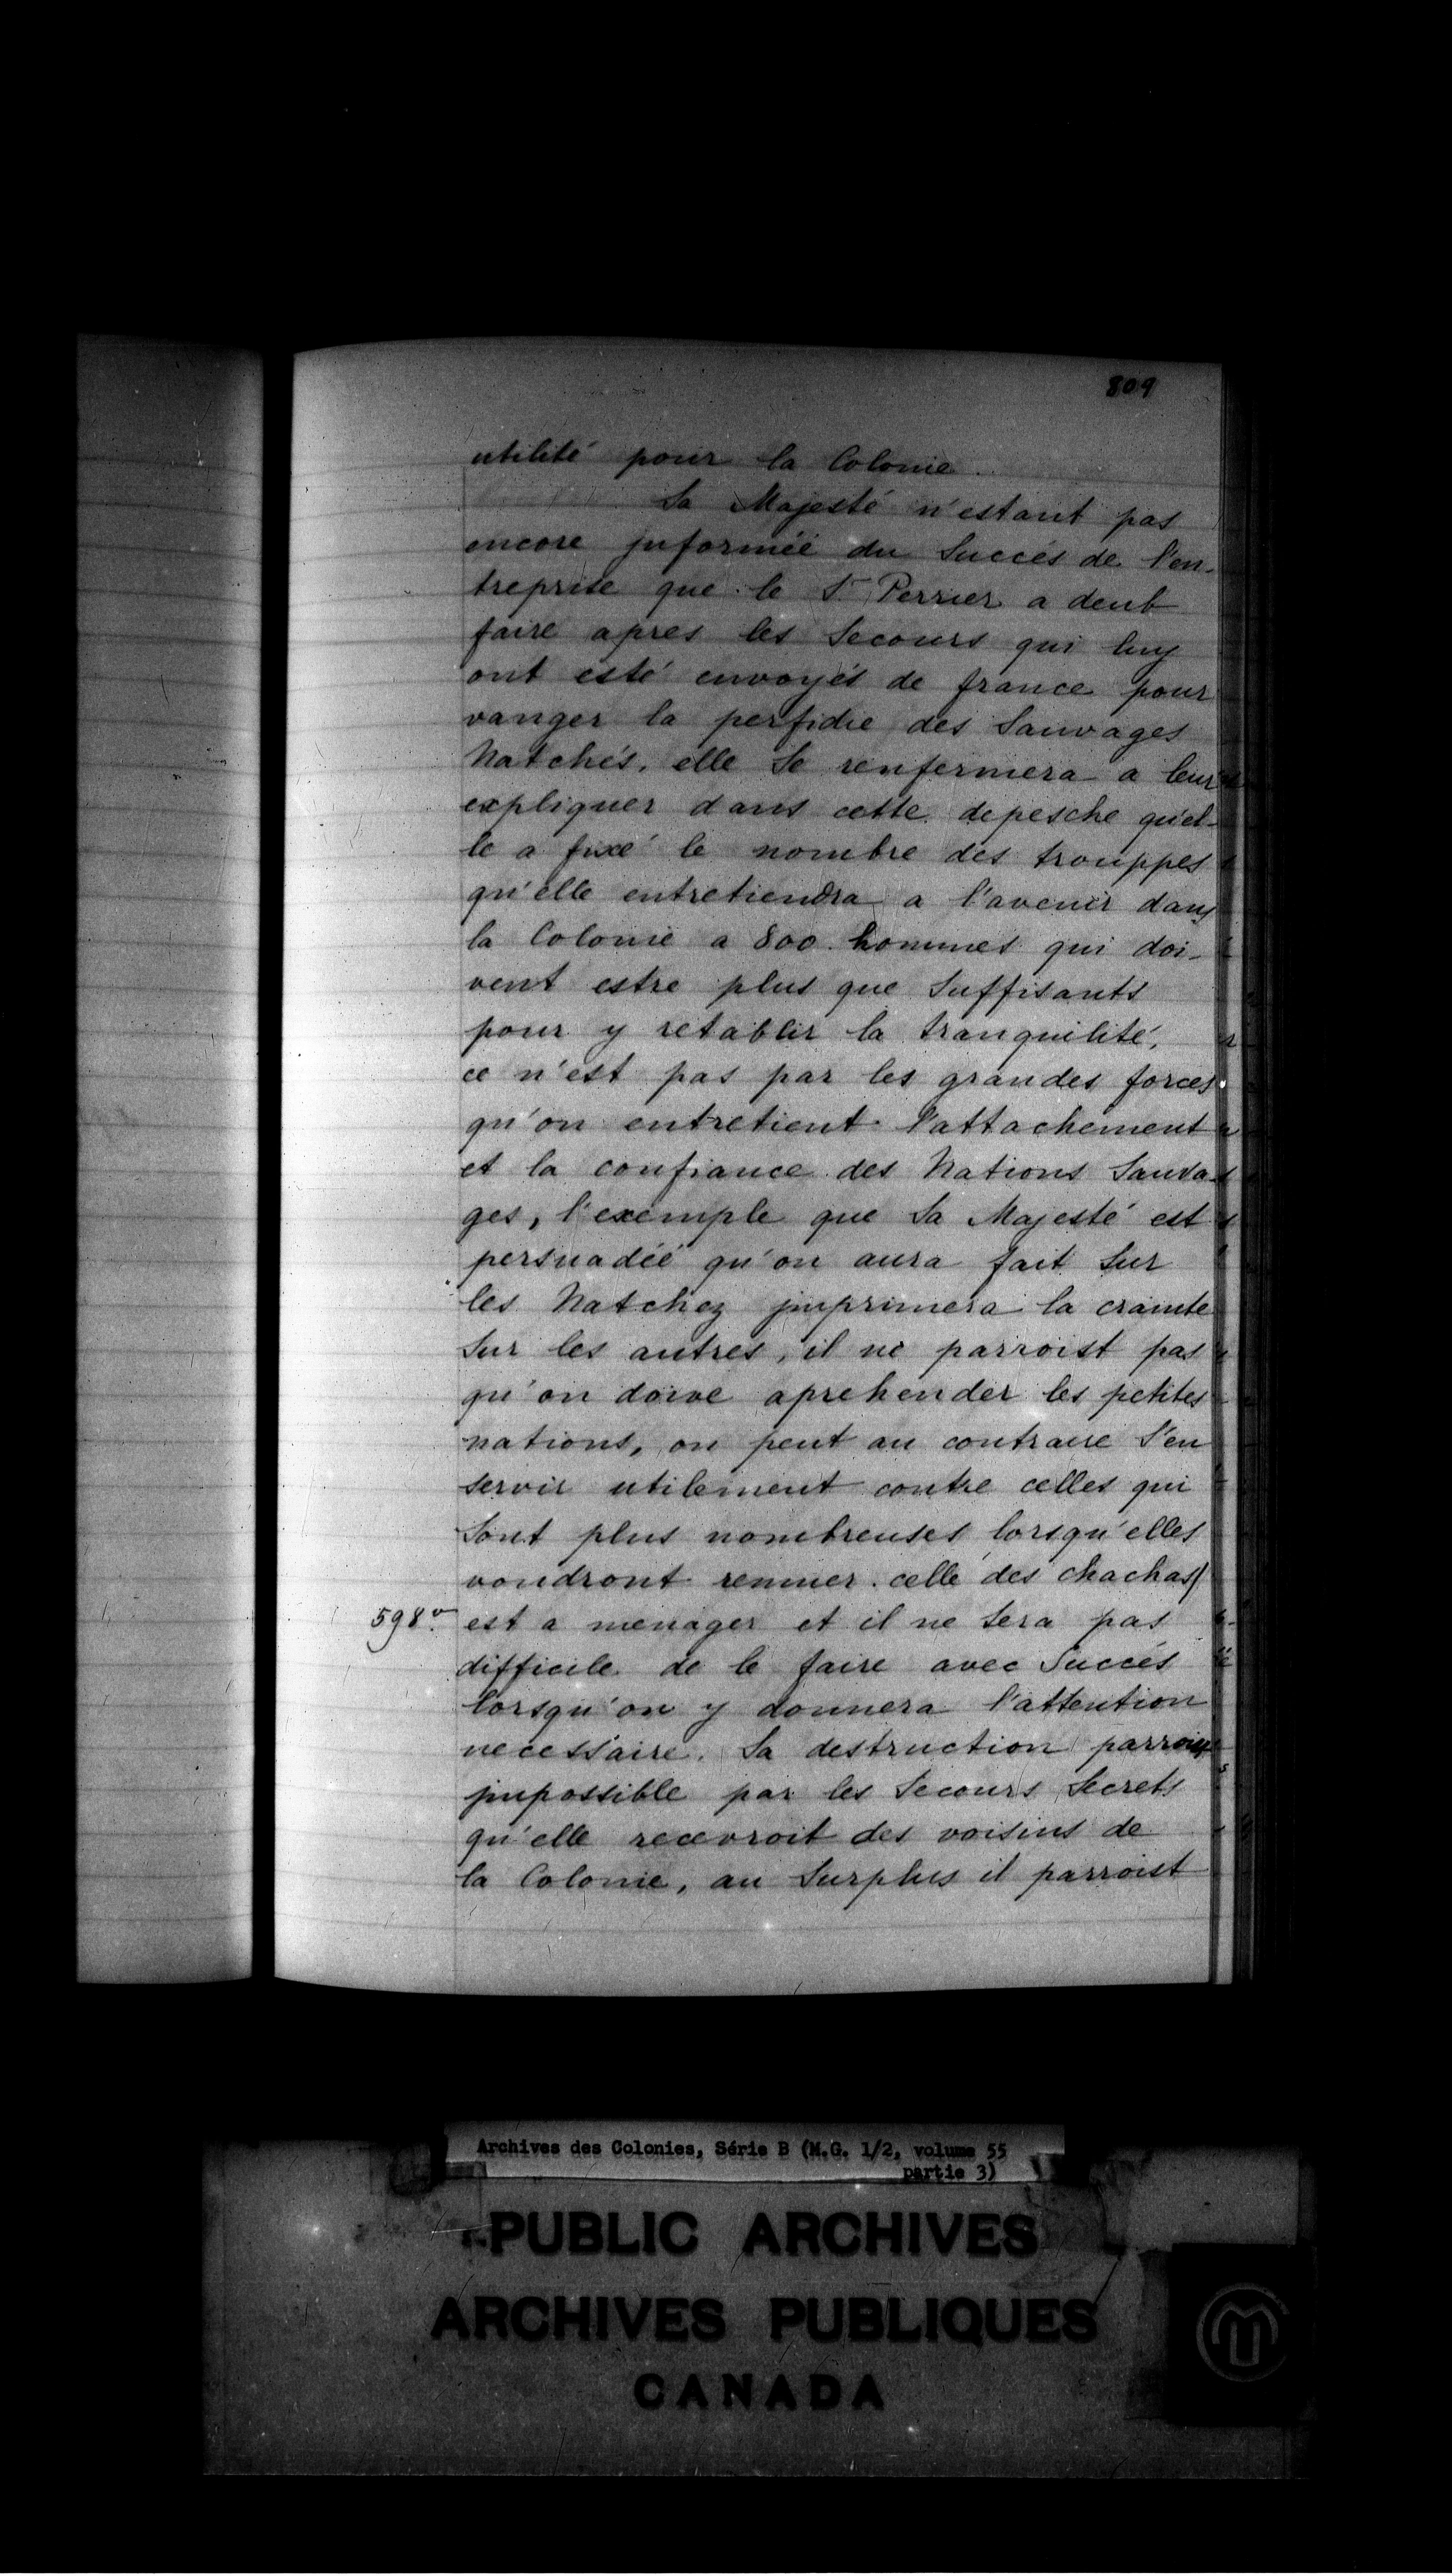 809
utilité pour la Colonie.
Sa Majesté n'estant pas
encore jnformée du Succés de l'en-
treprise que le Sr Perrier a deub
faire apres les Secours qui luy
ont esté envoyés de france pour
vanger la perfidie des Sauvages
Natchés, elle Se renfermera a leur
expliquer dans cette depesche qu'el-
le a fixé le nombre des trouppes
qu'elle entretiendra a l'avenir dans
la Colonie a 800. hommes qui doi-
vent estre plus que Suffisants
pour y retablir la tranquilité,
ce n'est pas par les grandes forces
qu'on entretient l'attachement
et la confiance des Nations Sauva-
ges, l'exemple que Sa Majesté est
persuadée qu'on aura fait Sur
les Natchez jmprimera la crainte
Sur les autres, il ne parroist pas
qu'on doive aprehender les petites
nations, on peut au contraire S'en
servir utilement contre celles qui
Sont plus nombreuses lorsqu'elles
voudront remuer. celle des chachas
598vo. est a menager et il ne Sera pas
difficile de le faire avec Succés
lorsqu'on y donnera l'attention
necessaire. Sa destruction parroist
jmpossible par les Secours Secrets
qu'elle recevroit des voisins de
la Colonie, au Surplus il parroist
Archives des Colonies, Série B (M.G. 1/2, volume 55
partie 3)
PUBLIC ARCHIVES
ARCHIVES PUBLIQUES
CANADA